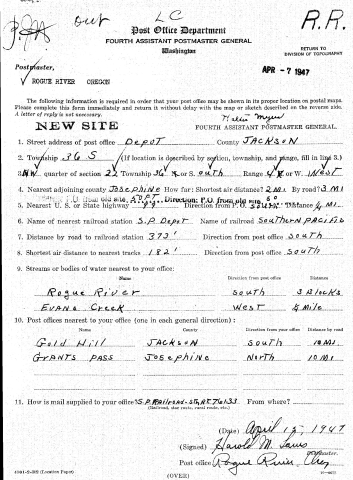 out LC R.R.
Post Office Department
FOURTH ASSISTANT POSTMASTER GENERAL
Washington
RETURN TO
DIVISION OF TOPOGRAPHY
APR - 7 1947
Postmaster,
ROGUE RIVER OREGON
The following information is required in order that your post office may be shown in its proper location on postal maps.
Please complete this form immediately and return it without delay with the map or sketch described on the reverse side.
A letter of reply is not necessary.
NEW SITE
FOURTH ASSISTANT POSTMASTER GENERAL.
1. Street address of post office Depot County JACKSON
2. Township 36 S (If location is described by section, township, and range, fill in line 3.)
3. NW quarter of section 22 Township 36 South Range 4 or W. West
4. Nearest adjoining county Josephine How far: Shortest air distance? 2 MI By road? 3 MI
5. Nearest U. S. or State highway 99 Direction from P. O. South
6. Name of nearest railroad station S.P. Depot Name of railroad Southern Pacific
7. Distance by road to railroad station 373' Direction from post office South
8. Shortest air-distance to nearest tracks 182' Direction from post office South
9. Streams or bodies of water nearest to your office:
Name Direction from post office Distance
Rogue River South 3 Blocks
Evans Creek West ¼ mile
10. Post offices nearest to your office (one in each general direction):
Name County Direction from your office Distance by road
Gold Hill JACKSON South 10 MI
GRANTS PASS Josephine North 10 MI
11. How is mail supplied to your office? S.P. Railroad From where?
(Railroad, star route, rural route, etc.)
(Date) April 15, 1947
(Signed) Harold M.
Postmaster.
Post office Rogue River, Oreg
(OVER)